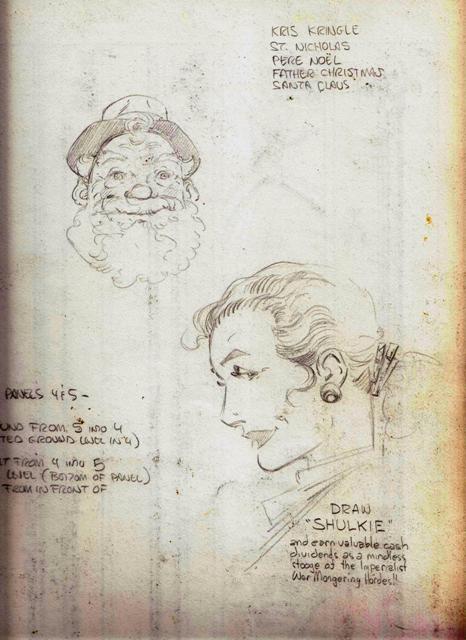 KRIS KRINGLE
ST. NICHOLAS
PERE NOËL
FATHER CHRISTMAS
SANTA CLAUS
PANELS 4 & 5 -
UND FROM 5 INTO 4
TED GROUND LEVEL IN 4)
T FROM 4 INTO 5
LEVEL (BOTTOM OF PANEL)
FROM IN FRONT OF
DRAW
"SHULKIE"
and earn valuable cash
dividends as a mindless
stooge of the Imperialist
War Mongering Hordes!!